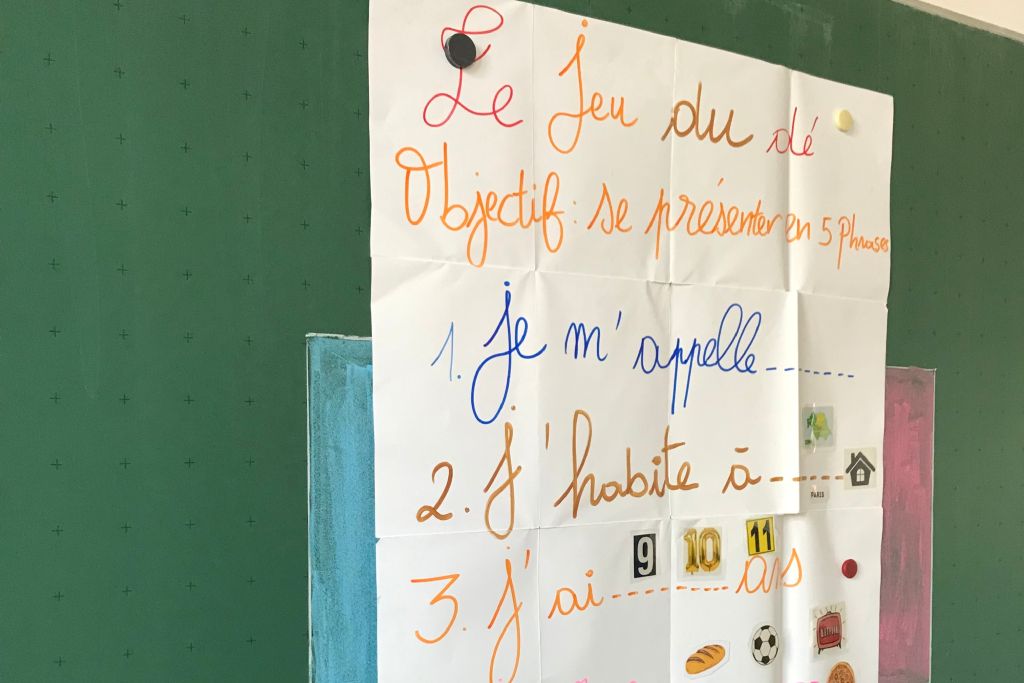 Le Jeu du dé
Objectif : se présenter en 5 Phrases
1. Je m'appelle -------
2. J'habite à ------
PARIS
9 10 11
3. J'ai --------- ans
NETFLIX